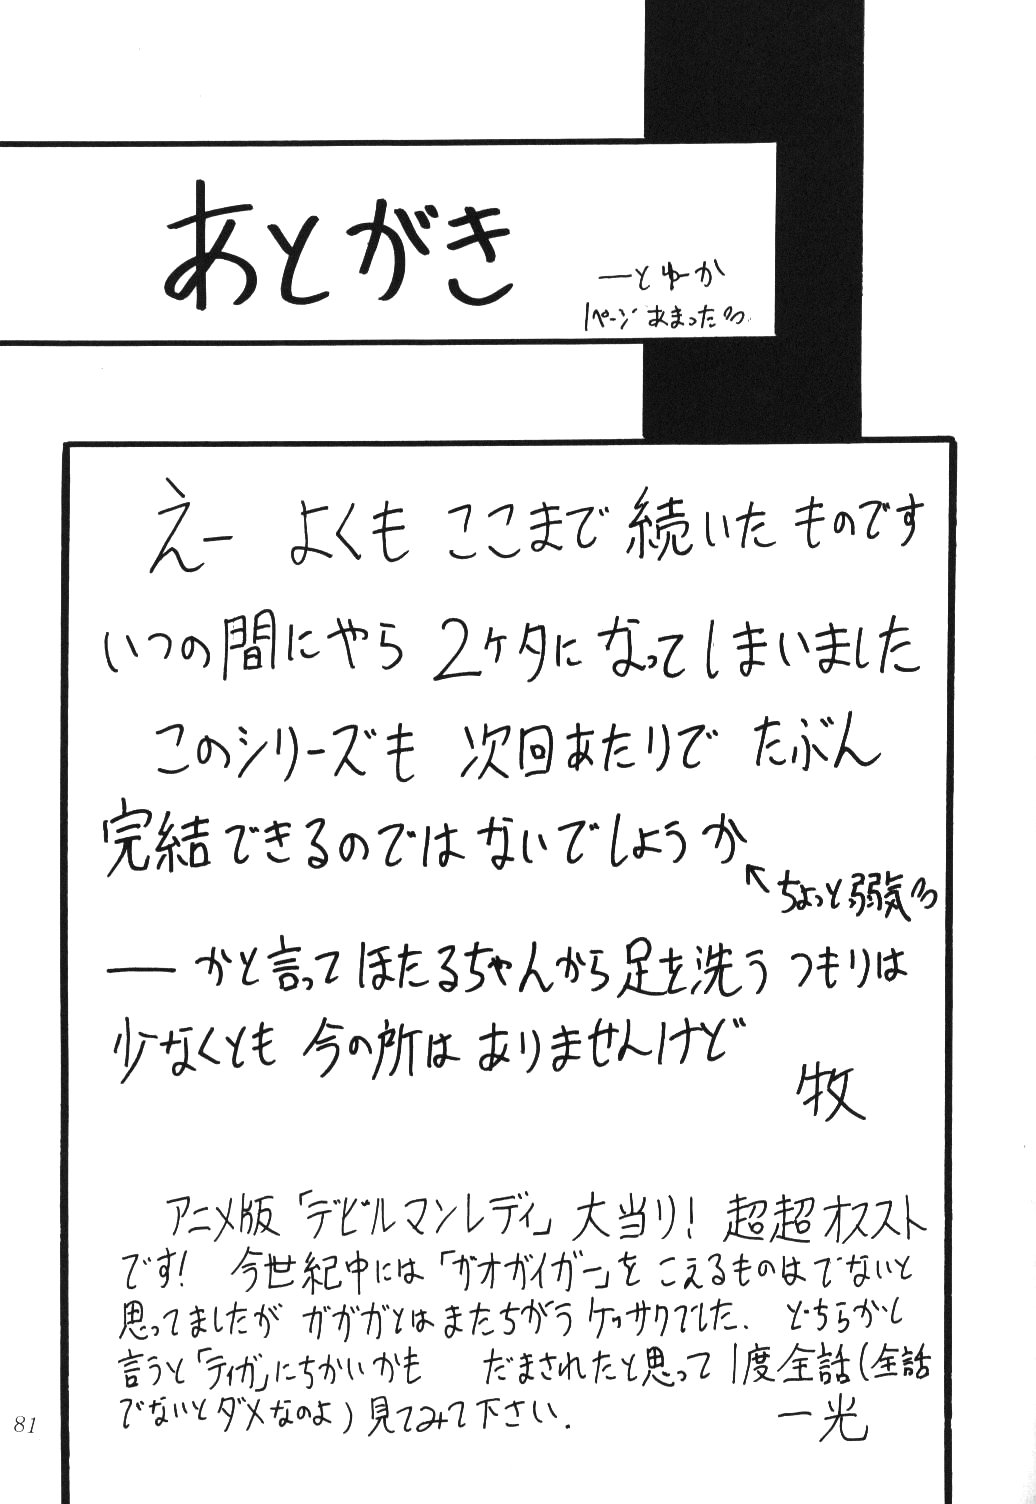 あとがき
―とゆーか
1ページあまった
えー よくも ここまで 続いた ものです
いつの間にやら 2ケタに なってしまいました
このシリーズも 次回あたりで たぶん
完結できるのでは ないでしょうか
←ちょっと弱気
― かと言って ほたるちゃんから 足を洗う つもりは
少なくとも 今の所は ありませんけど
牧
アニメ版「デビルマンレディ」大当り! 超超オススト
です! 今世紀中には「ガオガイガー」を こえるものはでないと
思ってましたが ガガガとはまたちがう ケッサクでした. どちらかし
言うと「ティガ」にちかいかも だまされたと思って 1度全話(全話
でないとダメなのよ)見てみて下さい.
一光
81